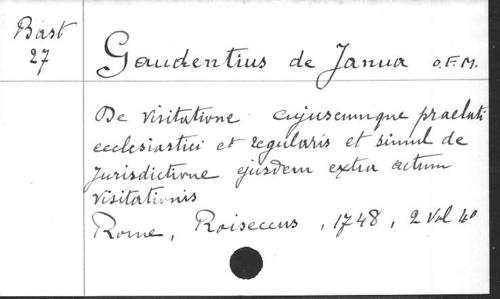 Bast
27
Gaudentius de Janua O.F.M.
De visitatione cujuscumque praelati
ecclesiastici et regularis et simul de
Jurisdictione ejusdem extra actum
visitationis
Rome, Roiseccus, 1748, 2 vol 4o